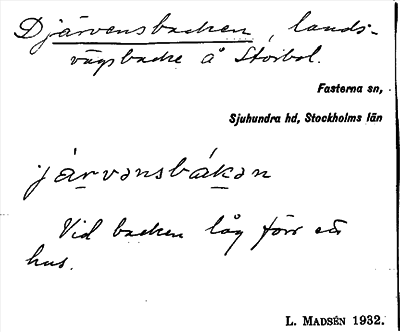 Djärvensbacken, lands-
vägsbacke å Storbol.
Fasterna sn,
Sjuhundra hd, Stockholms län
järvənsbákən
Vid backen låg förr ett
hus.
L. MADSÉN 1932.